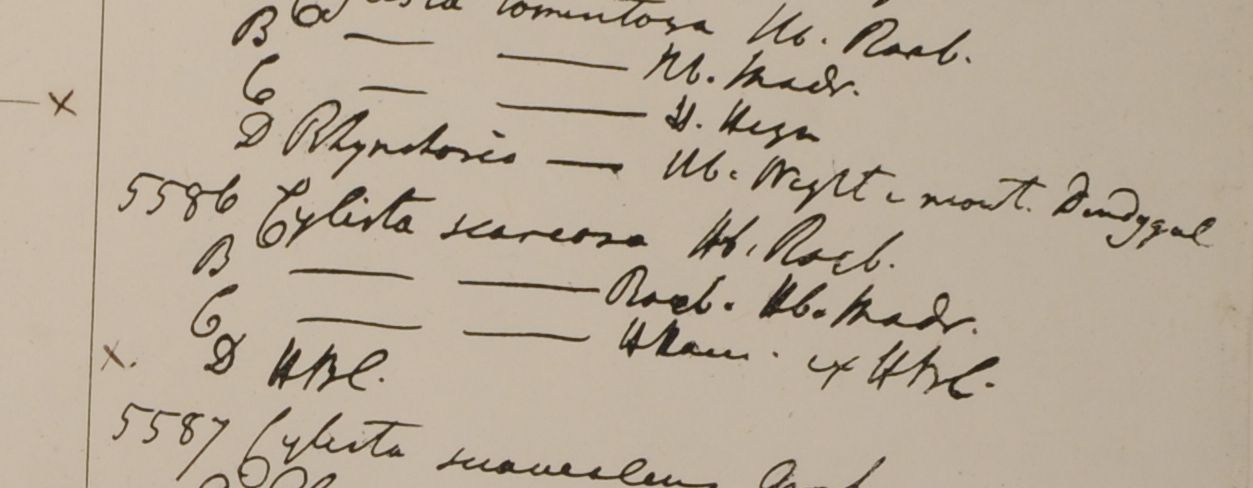 Cylista tomentosa Hb. Roxb.
B — — Hb. Madr.
C — — H. Heyn
D Rhynchosia — Hb. Wight e mont. Dindygul
5586 Cylista scareosa Hb. Roxb.
B — — Roxb. Hb. Madr.
C — — HHam. ex HBC.
x. D HBC.
5587 Cylista suaveolens